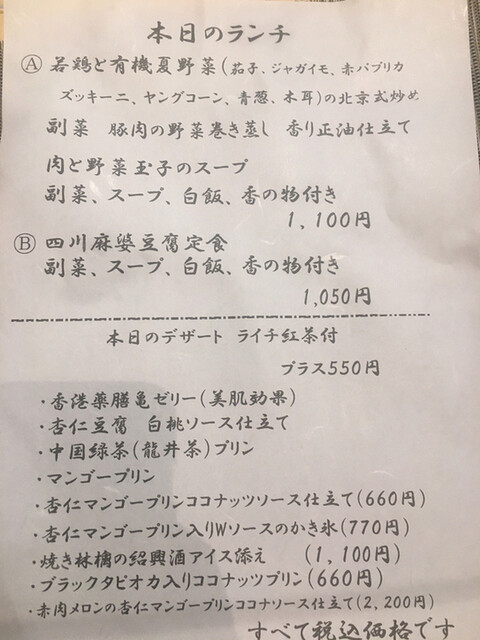 本日のランチ
Ⓐ 若鶏と有機夏野菜(茄子、ジャガイモ、赤パプリカ
ズッキーニ、ヤングコーン、青葱、木耳)の北京式炒め
副菜 豚肉の野菜巻き蒸し 香り正油仕立て
肉と野菜玉子のスープ
副菜、スープ、白飯、香の物付き
1,100円
Ⓑ 四川麻婆豆腐定食
副菜、スープ、白飯、香の物付き
1,050円
本日のデザート ライチ紅茶付
プラス550円
・香港薬膳亀ゼリー(美肌効果)
・杏仁豆腐 白桃ソース仕立て
・中国緑茶(龍井茶)プリン
・マンゴープリン
・杏仁マンゴープリンココナッツソース仕立て(660円)
・杏仁マンゴープリン入りWソースのかき氷(770円)
・焼き林檎の紹興酒アイス添え (1,100円)
・ブラックタピオカ入りココナッツプリン(660円)
・赤肉メロンの杏仁マンゴープリンココナソース仕立て(2,200円)
すべて税込価格です